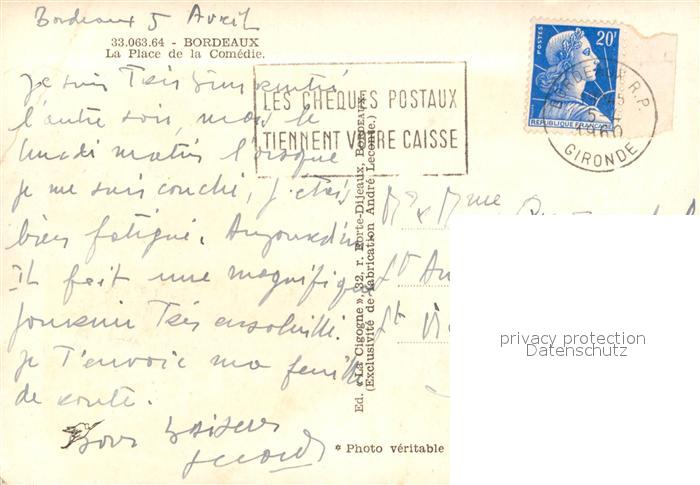 Bordeaux 5 Avril
33.063.64 - BORDEAUX
La Place de la Comédie.
Je suis très
l'autre soir, mais le
matin lorsque
je me suis couché, j'étais
bien fatigué. Aujourd'hui
Il fait une magnifique
journée très ensoleillée.
je t'envoie ma feuille
de route.
Bons Baisers
LES CHEQUES POSTAUX
TIENNENT VOTRE CAISSE
POSTES
20F
REPUBLIQUE FRANÇAISE
BORDEAUX R.P.
5-4
1960
GIRONDE
Ed. «La Cigogne», 32, r. Porte-Dijeaux, BORDEAUX.
(Exclusivité de fabrication André Leconte.)
Mr & Mme
St
St
privacy protection
Datenschutz
* Photo véritable